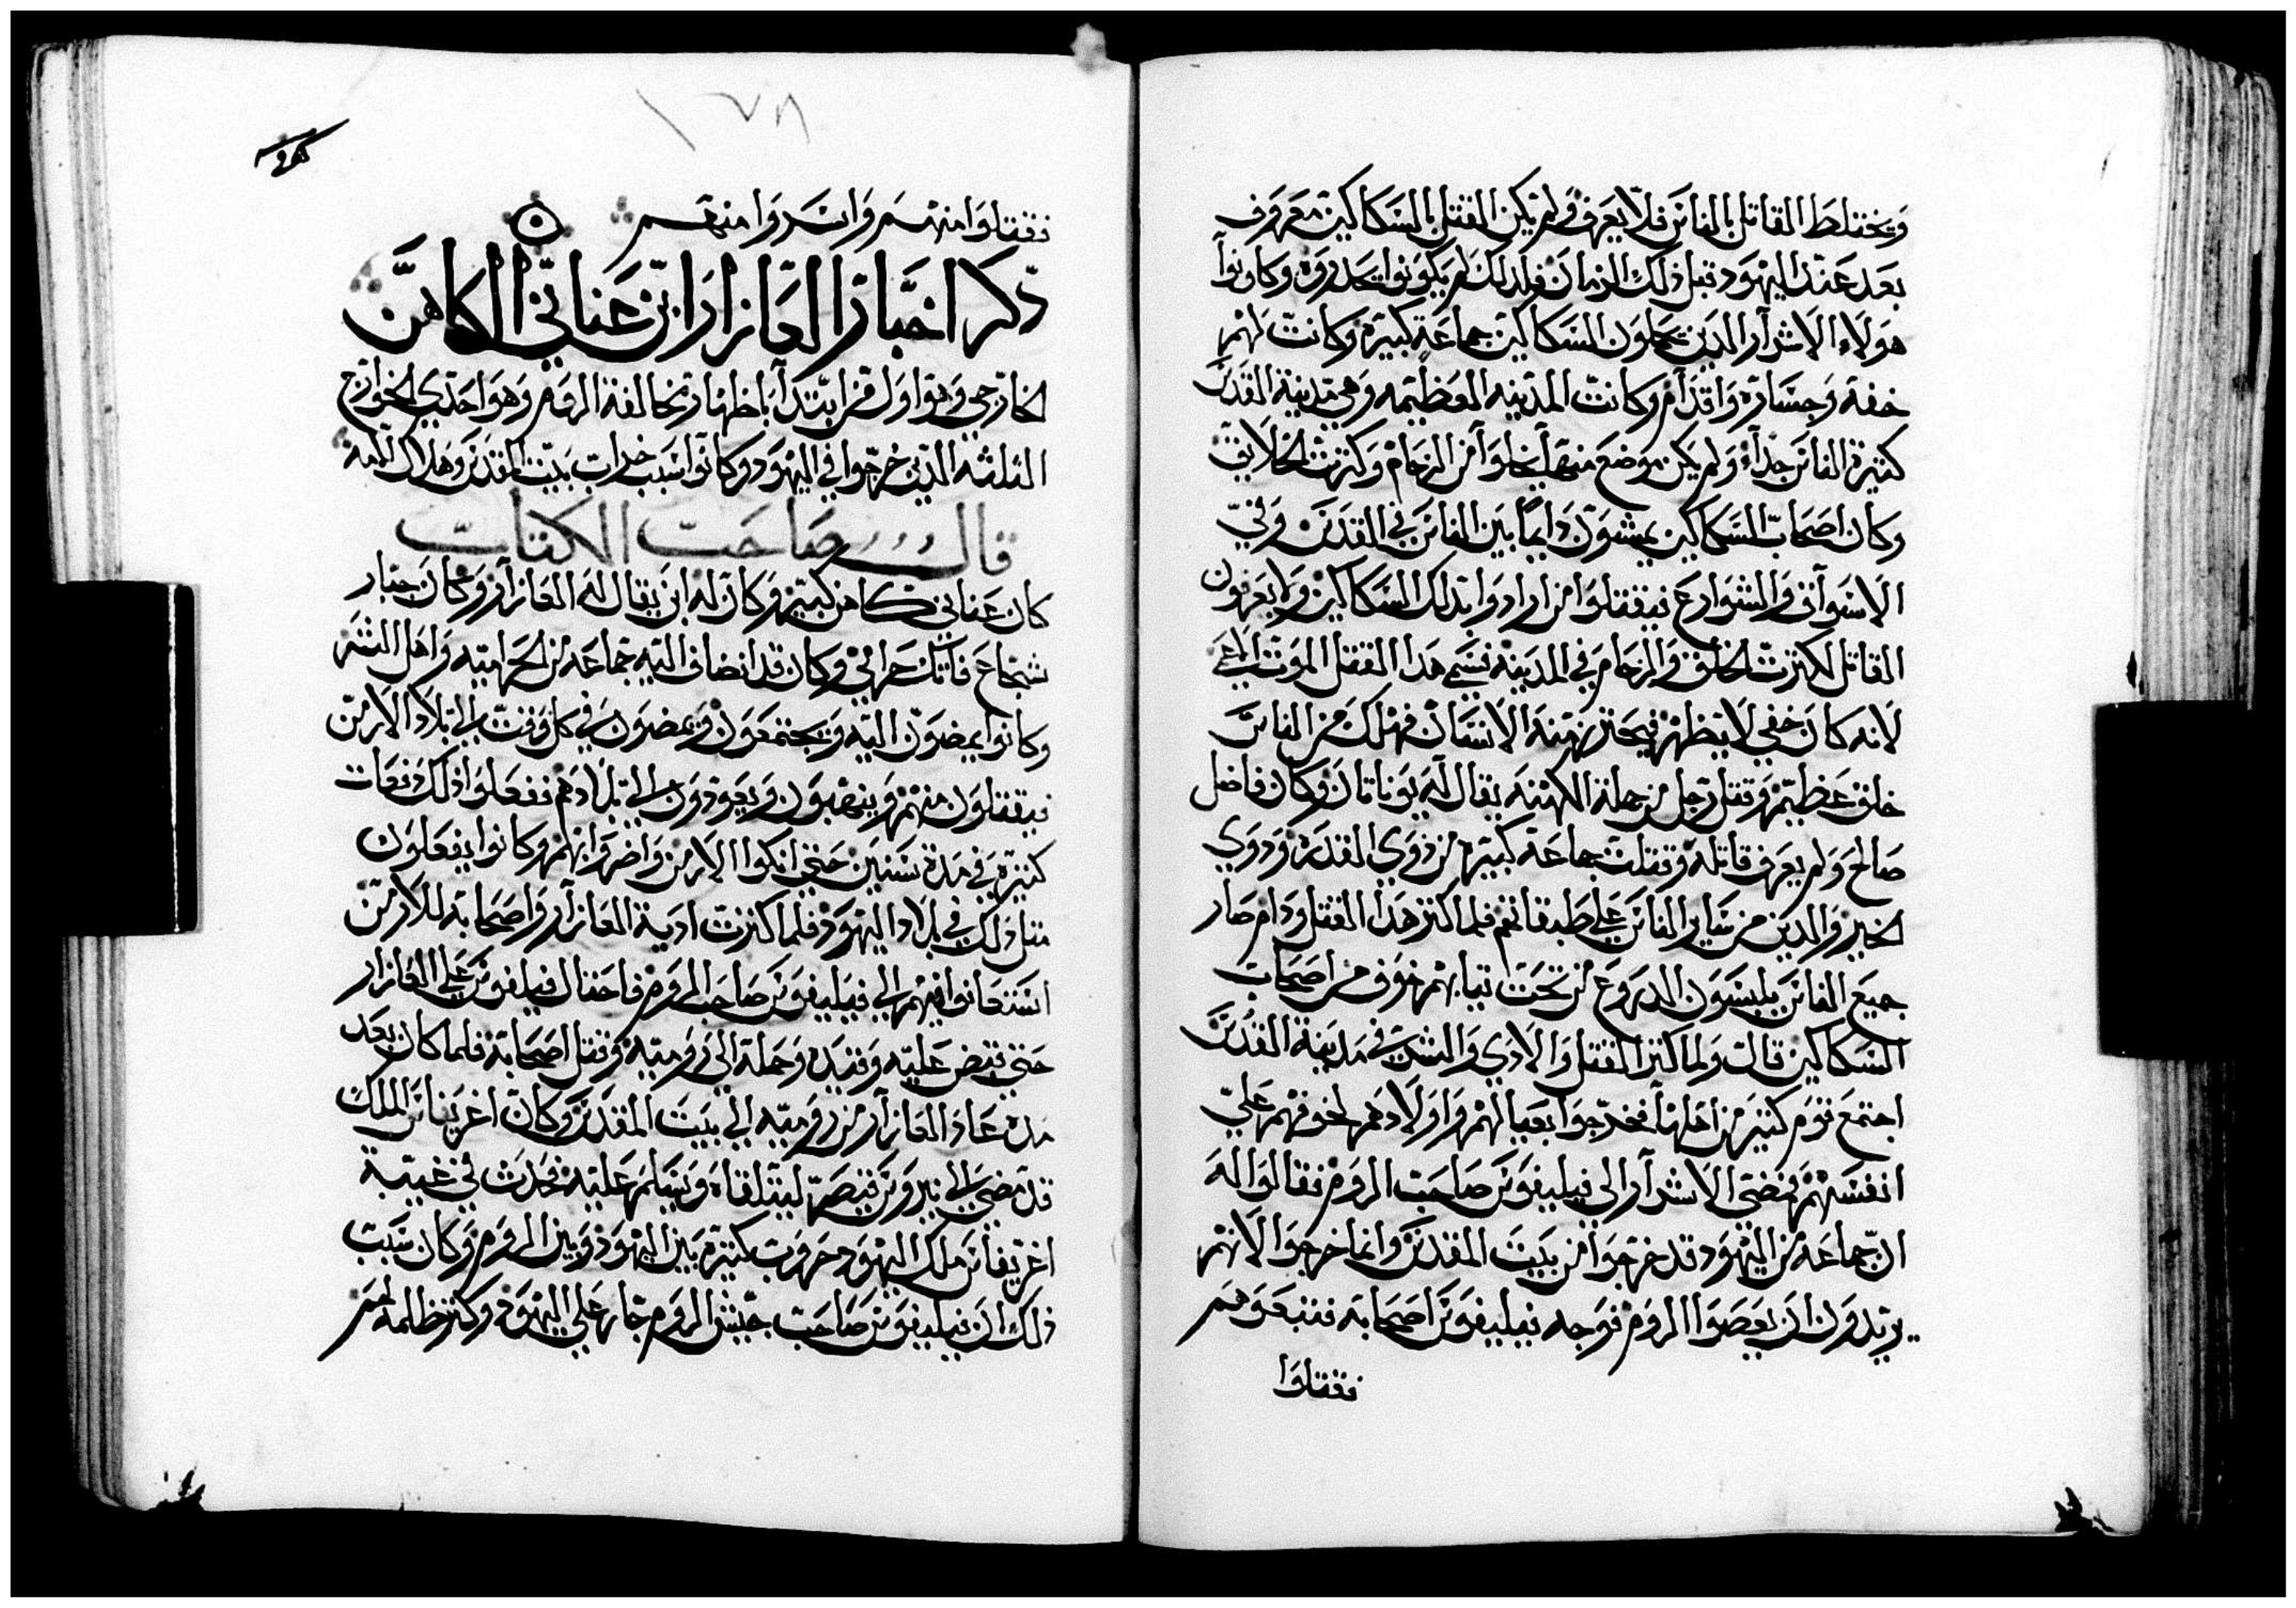 ويختلط القاتل بالناس فلا يعرف ولم يكن القتل بالسكاكين معروف
بعد عند اليهود قبل ذلك الزمان فلذلك لم يكونوا يحذروه وكانوا
هولاء الاشرار الذين يحملون السكاكين جماعة كبيرة وكانت لهم
خفة وجسارة واقدام وكانت المدينه العظيمه وهي مدينة القدس
كثيرة الناس جدآ ولم يكن موضع منها يخلوا من الزحام وكثرت الخلايق
وكان اصحاب السكاكين يمشون دايما بين الناس في القدس وفي
الاسواق والشوارع فيقتلوا من ارادوا بتلك السكاكين ولا يعرفون
القاتل لكثرت الخلق والزحام في المدينه فسمي هذا القتل الموت
لانه كان خفي لا يظهر فيحترز منه الانسان فهلك من الناس
خلق عظيم وقتل رجل من جملة الكهنه يقال له يوناتان وكان فاضل
صالح ولم يعرف قاتله وقتلت جماعة كبيرة من ذوي القدر وذوي
الخير والدين من ساير الناس علي طبقاتهم فلما كثر هذا القتل ودام صار
جميع الناس يلبسون الدروع من تحت تيابهم خوف من اصحاب
السكاكين قال ولما كثر القتل والادي والشر في مدينة القدس
اجتمع قوم كثير من اهلها فخرجوا بعيالهم واولادهم لخوفهم علي
انفسهم فمضي الاشرار الى فيليفوس صاحب الروم فقالوا له
ان جماعة من اليهود قد خرجوا من بيت المقدس وانما خرجوا لانهم
يريدون ان يعصوا الروم فوجه فيليفوس اصحابه فتبعوهم
فقتلوا
١٢٨
فقتلوا منهم واسروا منهم
ذكر اخبار العازار ابن عناني الكاهن
الخارجي وهو اول من ابتدا باظهار مخالفة الروم وهو احد الخوارج
الثلثه الذين خرجوا في اليهود وكانوا سبب خراب بيت المقدس وهلاك الامة
قال صاحب الكتاب
كان عناني كاهن كبير وكان له ابن يقال له العازار وكان جبار
شجاع فاتك حرامي وكان قد انضاف اليه جماعه من الحراميه واهل الشر
وكانوا يمضون اليه ويجتمعون ويمضون في كل وقت الي بلاد الارمن
فيقتلون منهم وينهبون ويعودون الي بلادهم ففعلوا ذلك دفعات
كثيرة في مدة سنين حتي انكوا الارمن واضروا بهم وكانوا يفعلون
مثل ذلك في بلاد اليهود فلما كثرت ادية العازار واصحابه للارمن
استعانوا فيهم الي فيليفوس صاحب الروم فاحتال فيلفوس علي العازار
حتي قبض عليه وقيده وحمله الي روميه وقتل اصحابه فلما كان بعد
مدة عاد العازار من روميه الي بيت المقدس وكان اغريفاس الملك
قد مضي الي نيروس قيصر ليتلقاه ويسلم عليه فحدث في غيبة
اغريفاس ملك اليهود حروب كثيرة بين اليهود وبين الروم وكان سبب
ذلك ان فيليفوس صاحب جيش الروم جار علي اليهود وكثر ظلمه لهم